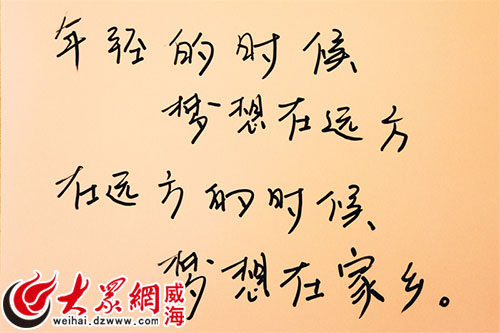 年轻的时候
梦想在远方
在远方的时候、
梦想在家乡。
大眾網 威海
weihai.dzwww.com